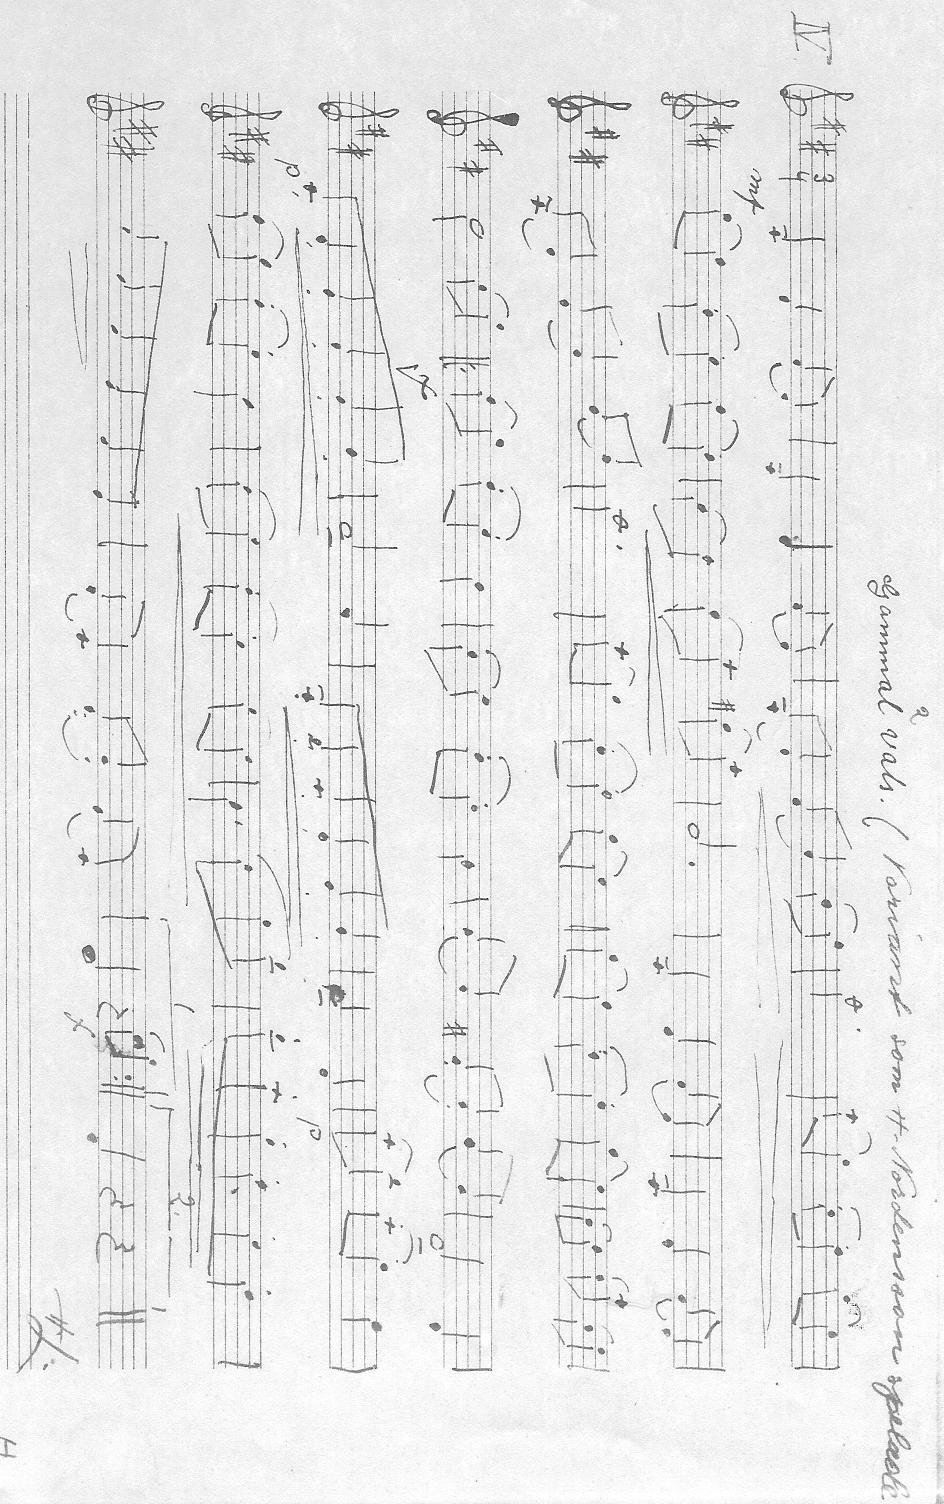 IV
Gammal vals. ( Variant som H. Nordensson spelade
2
3
4
mp
f
p
p
f
2.
H